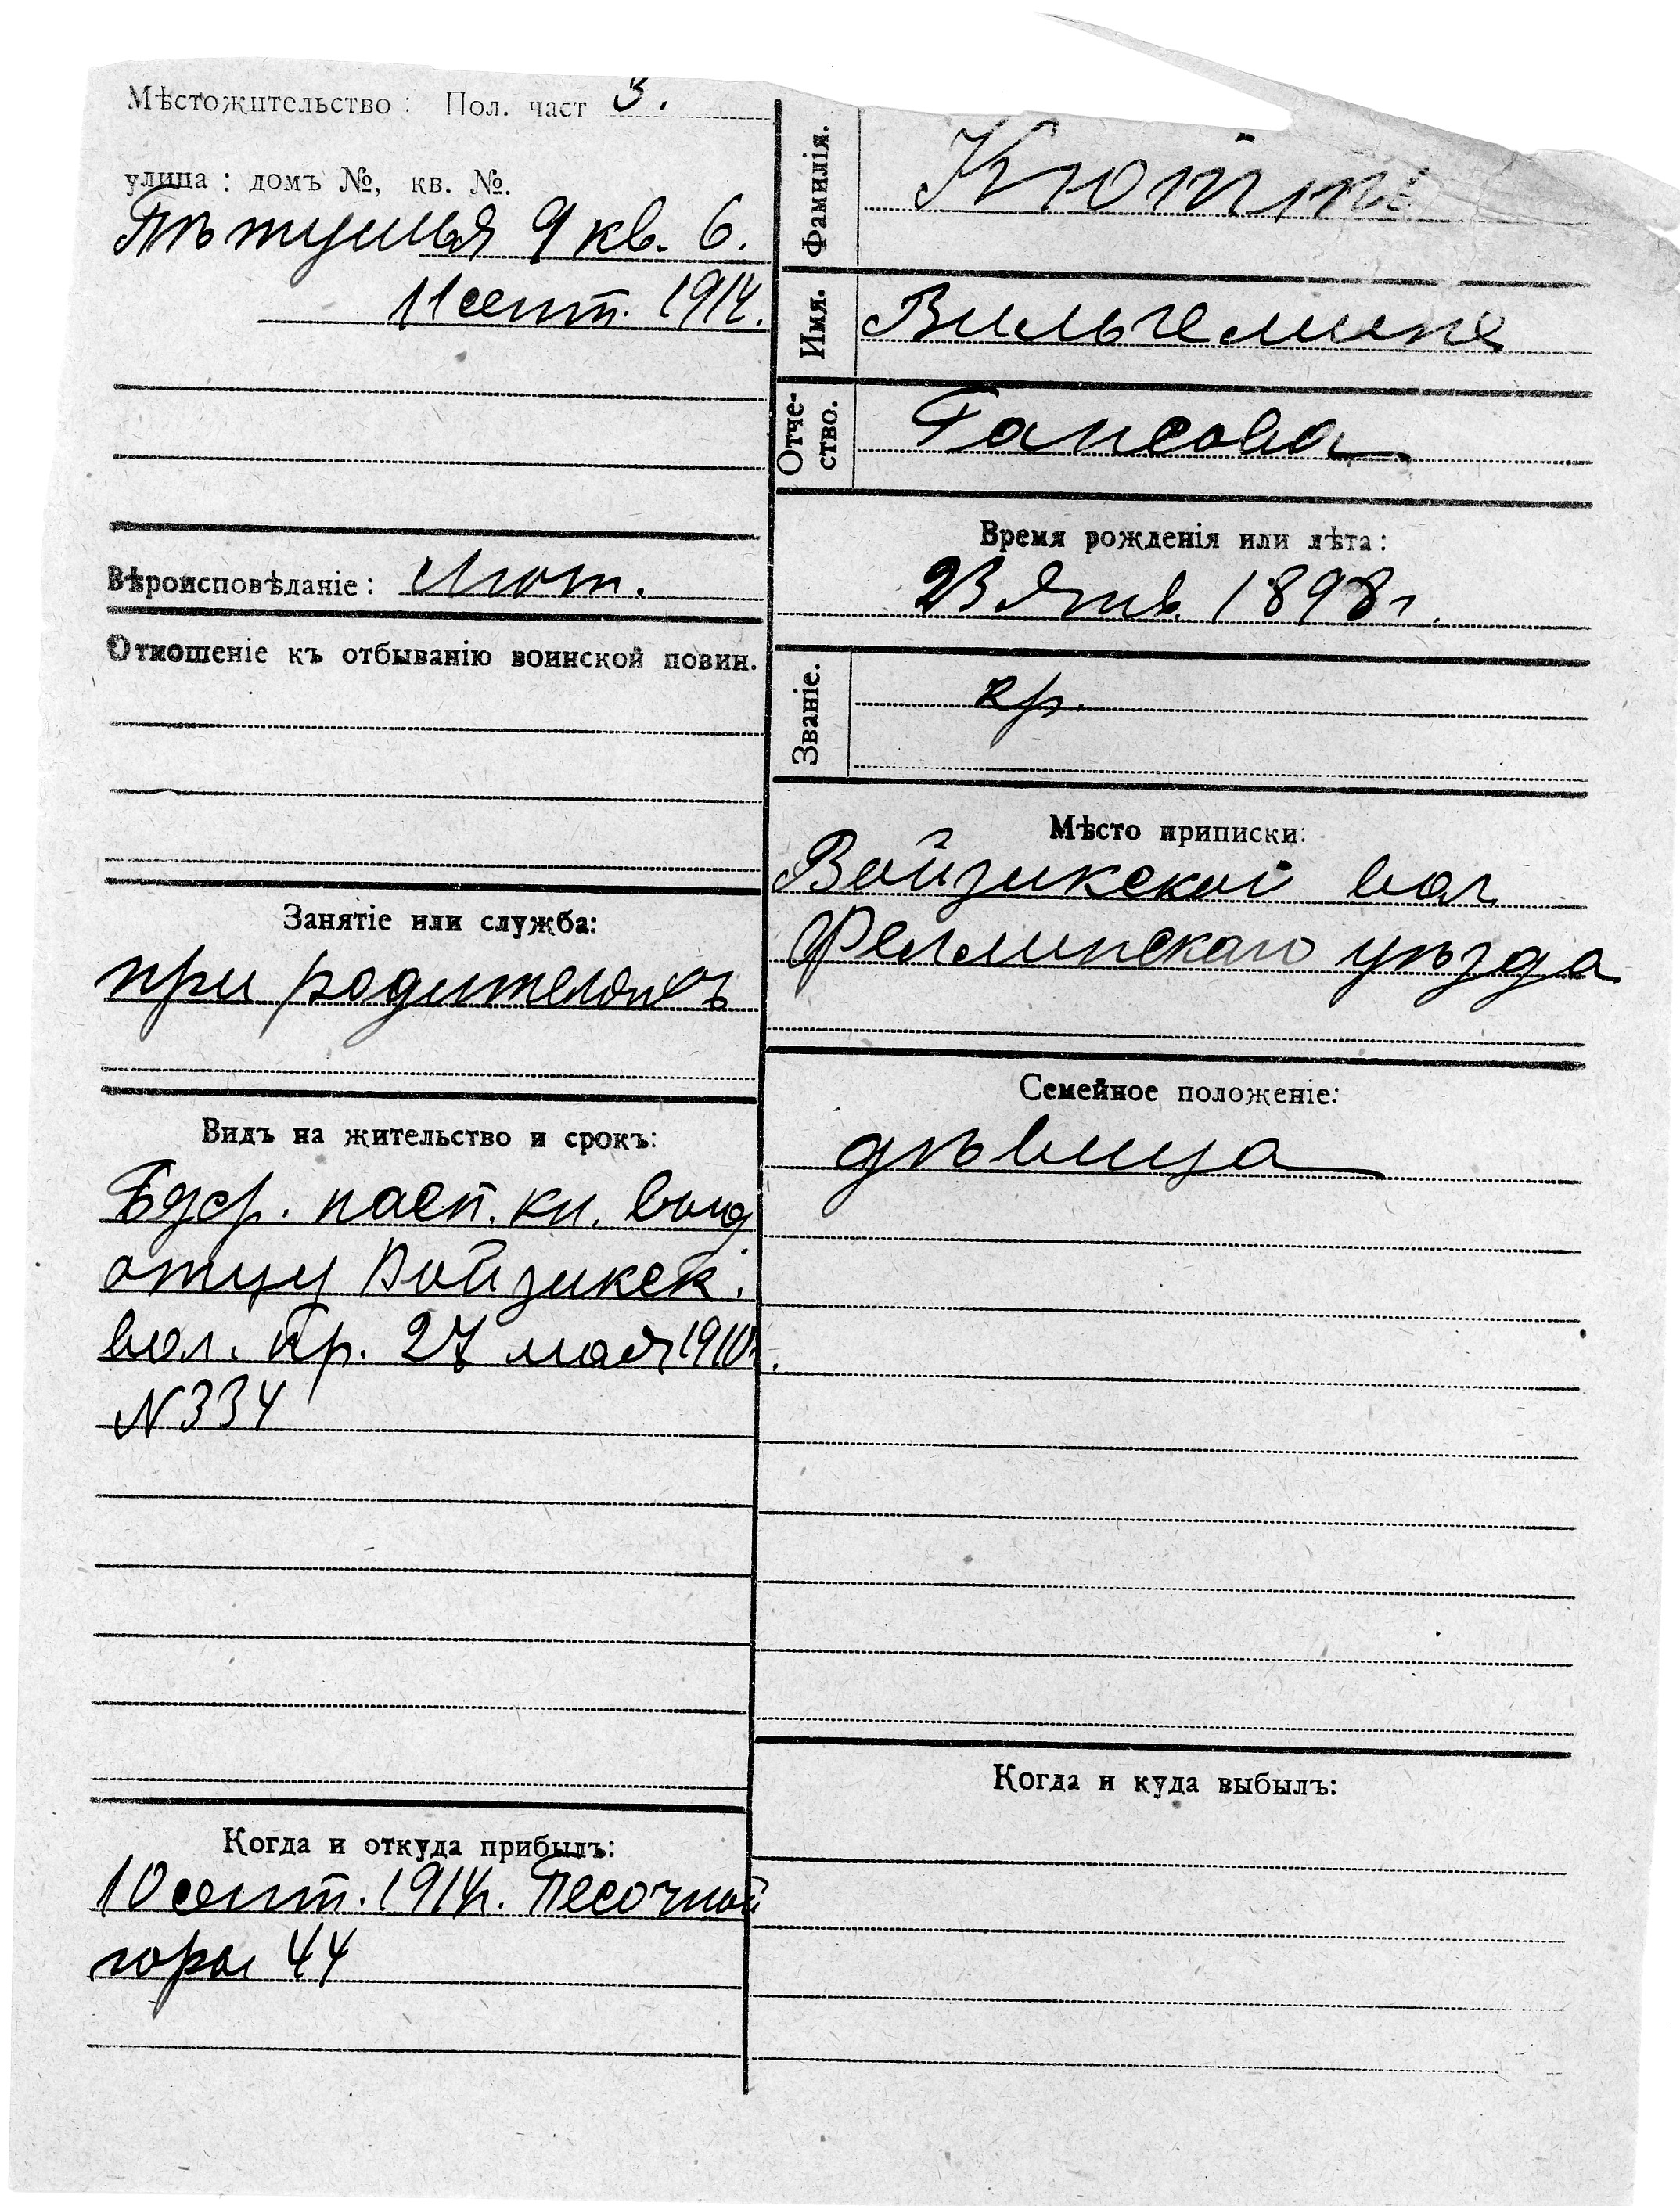 Мѣстожительство: Пол. част 3.
улица: домъ №, кв. №.
Пѣтушья 9 кв. 6.
11 сент. 1914.
Вѣроисповѣданіе: Лют.
Отношеніе къ отбыванію воинской повин.
Занятіе или служба:
при родителяхъ
Видъ на жительство и срокъ:
Бдср. пасп. кн. выд
отцу Войзикск.
вол. пр. 27 мая 1910г.
N 334
Когда и откуда прибылъ:
10 сент. 1914г. Песочной
горы 44
Фамилія.
Имя. Вильгелмине
Отче-
ство. Гансова
Время рожденія или лѣта:
23 Янв. 1898 г.
Званіе. кр.
Мѣсто приписки:
Войзикской вол
Феллинскаго уѣзда
Семейное положеніе:
дѣвица
Когда и куда выбылъ: